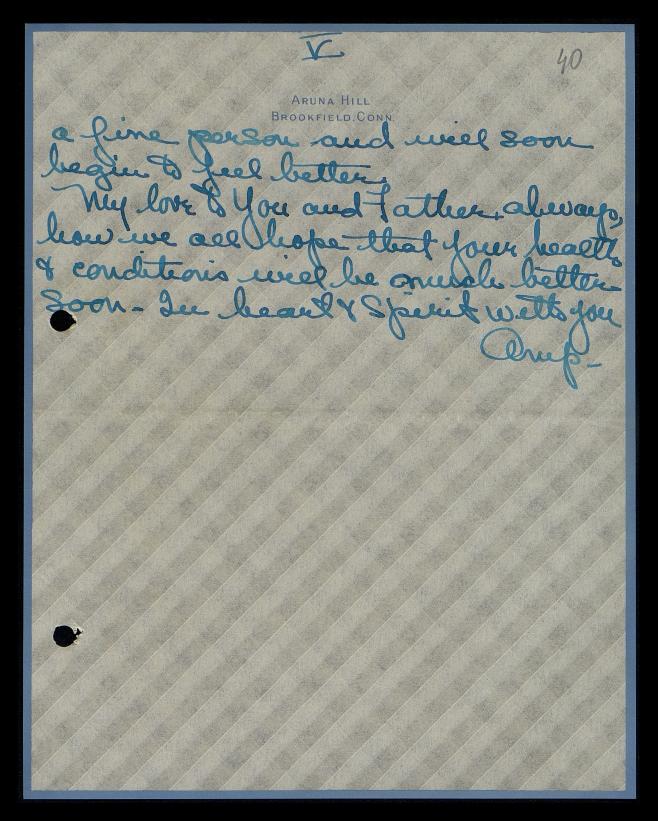 V
40
ARUNA HILL
BROOKFIELD, CONN.
a fine person and will soon
begin to feel better.
My love to you and Father, always,
how we all hope that your health
& conditions will be much better
soon - In heart & Spirit with you
Amp -